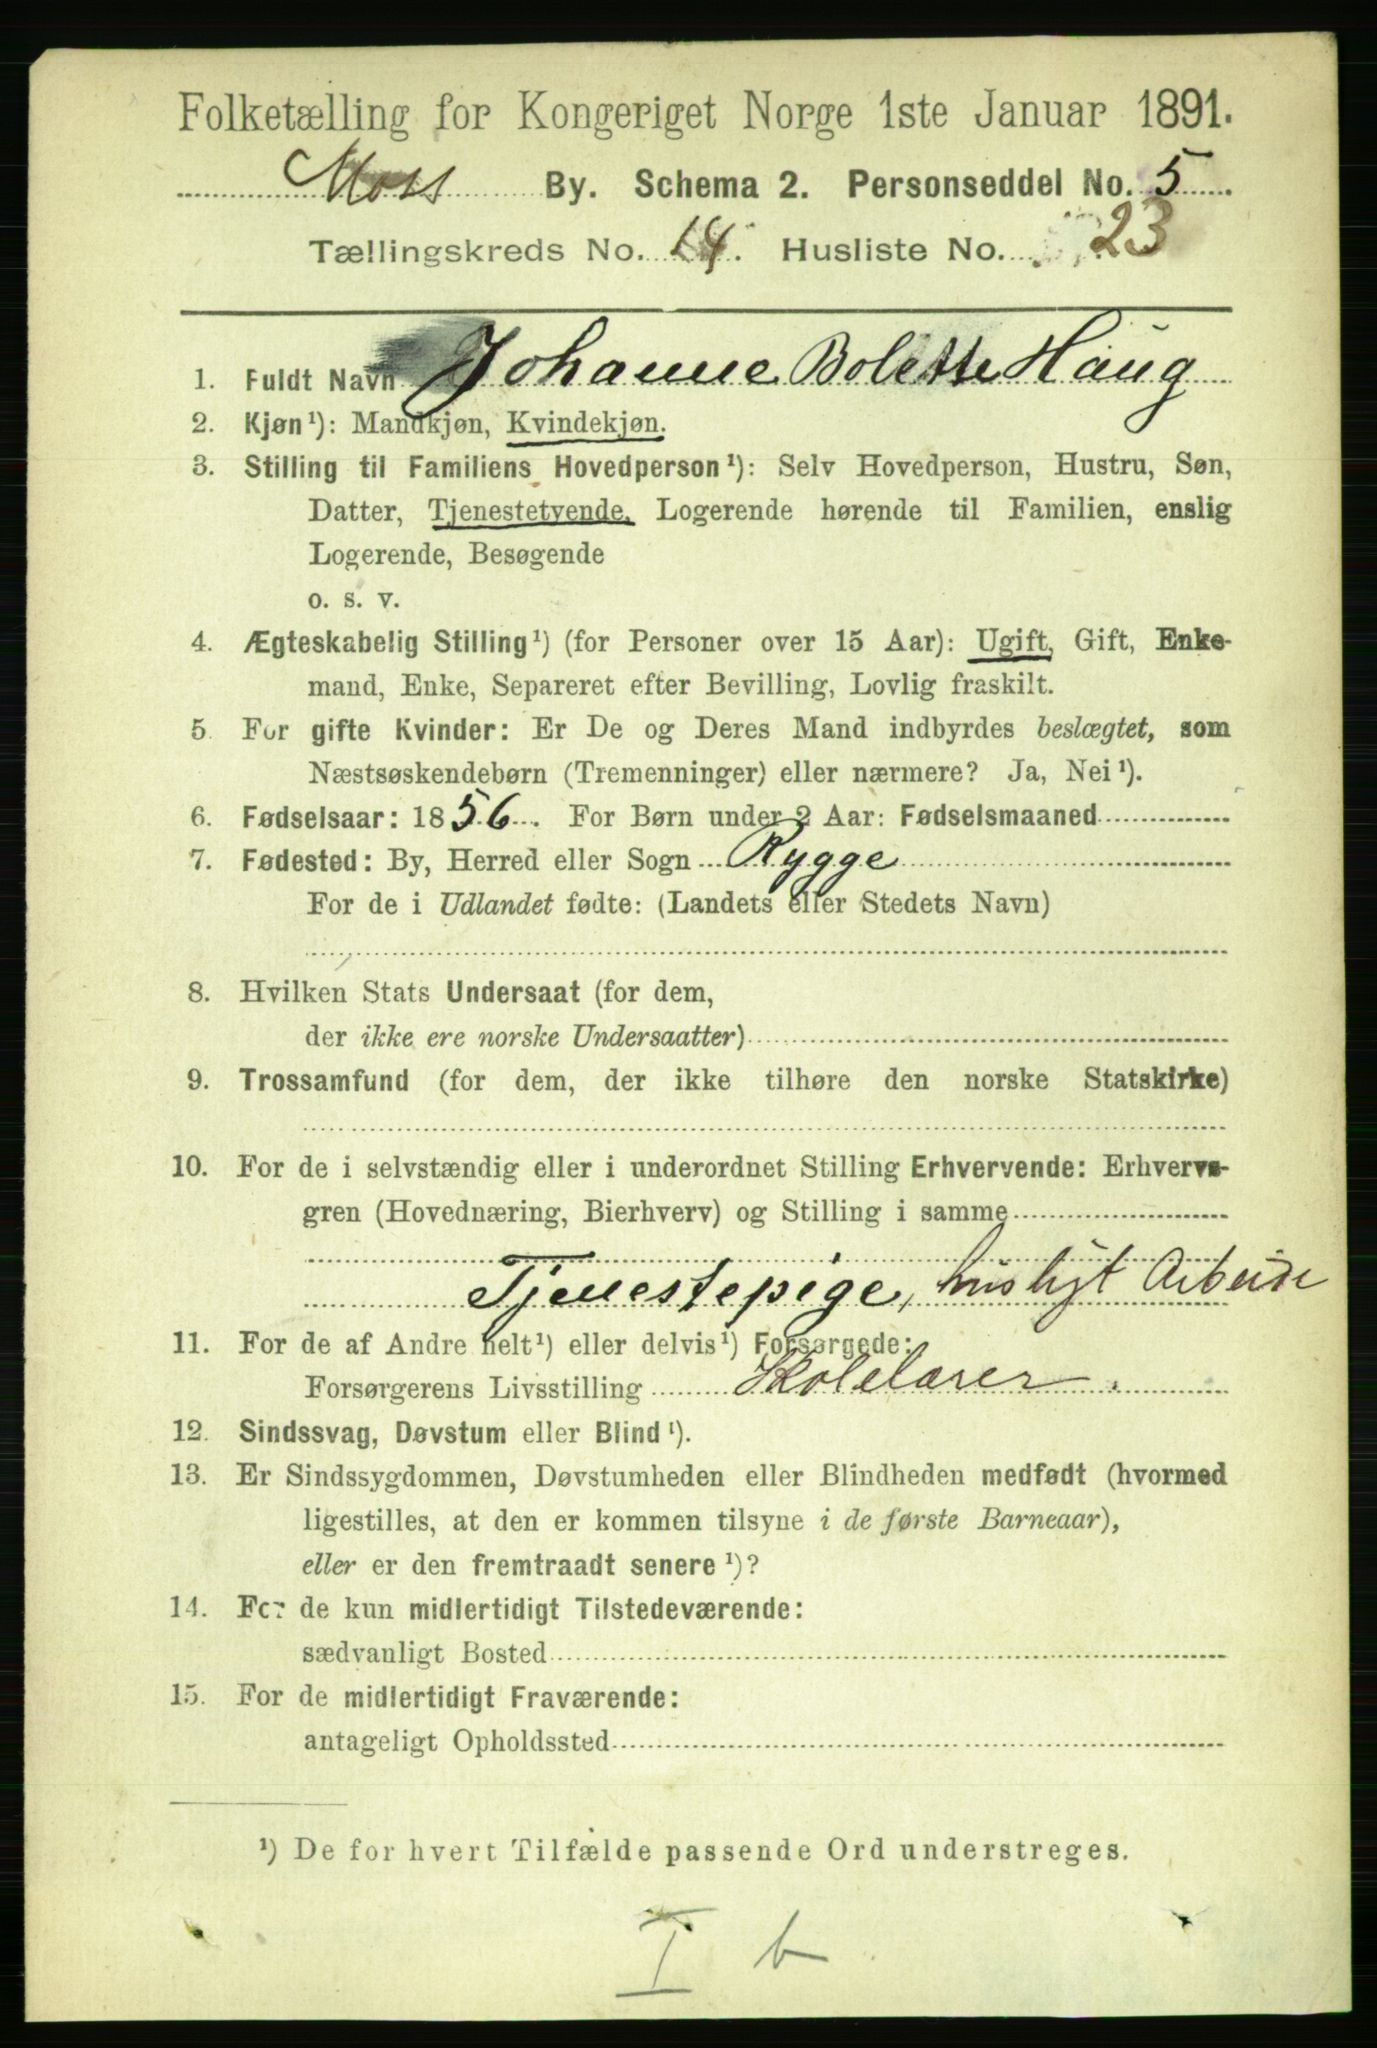 Folketælling for Kongeriget Norge 1ste Januar 1891.
Moss By. Schema 2. Personseddel No. 5
Tællingskreds No. 14. Husliste No. 23
1. Fuldt Navn Johanne Bolette Haug
2. Kjøn¹): Mandkjøn, Kvindekjøn.
3. Stilling til Familiens Hovedperson¹): Selv Hovedperson, Hustru, Søn,
Datter, Tjenestetyende, Logerende hørende til Familien, enslig
Logerende, Besøgende
o. s. v.
4. Ægteskabelig Stilling¹) (for Personer over 15 Aar): Ugift, Gift, Enke-
mand, Enke, Separeret efter Bevilling, Lovlig fraskilt.
5. For gifte Kvinder: Er De og Deres Mand indbyrdes beslægtet, som
Næstsøskendebørn (Tremenninger) eller nærmere? Ja, Nei¹).
6. Fødselsaar: 1856. For Børn under 2 Aar: Fødselsmaaned
7. Fødested: By, Herred eller Sogn Rygge
For de i Udlandet fødte: (Landets eller Stedets Navn)
8. Hvilken Stats Undersaat (for dem,
der ikke ere norske Undersaatter)
9. Trossamfund (for dem, der ikke tilhøre den norske Statskirke)
10. For de i selvstændig eller i underordnet Stilling Erhvervende: Erhvervs-
gren (Hovednæring, Bierhverv) og Stilling i samme
Tjenestepige, husligt Arbeide
11. For de af Andre helt¹) eller delvis¹) Forsørgede:
Forsørgerens Livsstilling Skolelærer.
12. Sindssvag, Døvstum eller Blind¹).
13. Er Sindssygdommen, Døvstumheden eller Blindheden medfødt (hvormed
ligestilles, at den er kommen tilsyne i de første Barneaar),
eller er den fremtraadt senere¹)?
14. For de kun midlertidigt Tilstedeværende:
sædvanligt Bosted
15. For de midlertidigt Fraværende:
antageligt Opholdssted
¹) De for hvert Tilfælde passende Ord understreges.
I b